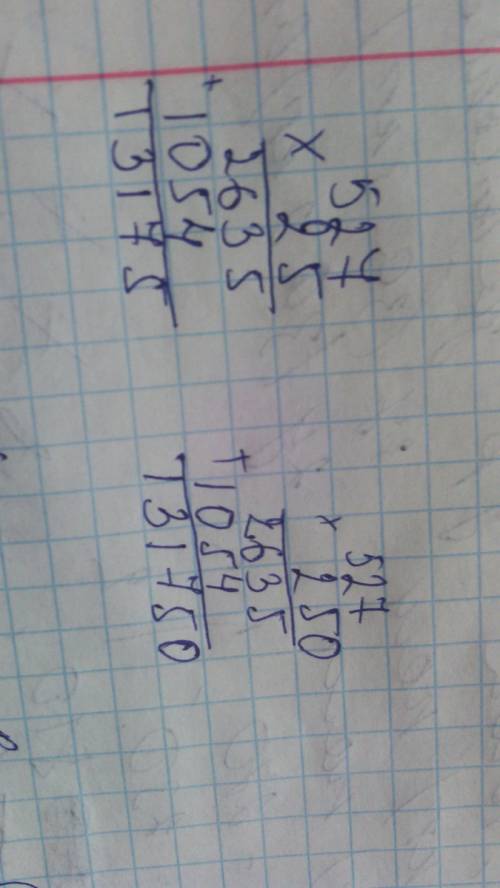 527
× 25
2635
+ 1054
13175
527
× 250
2635
+ 1054
131750